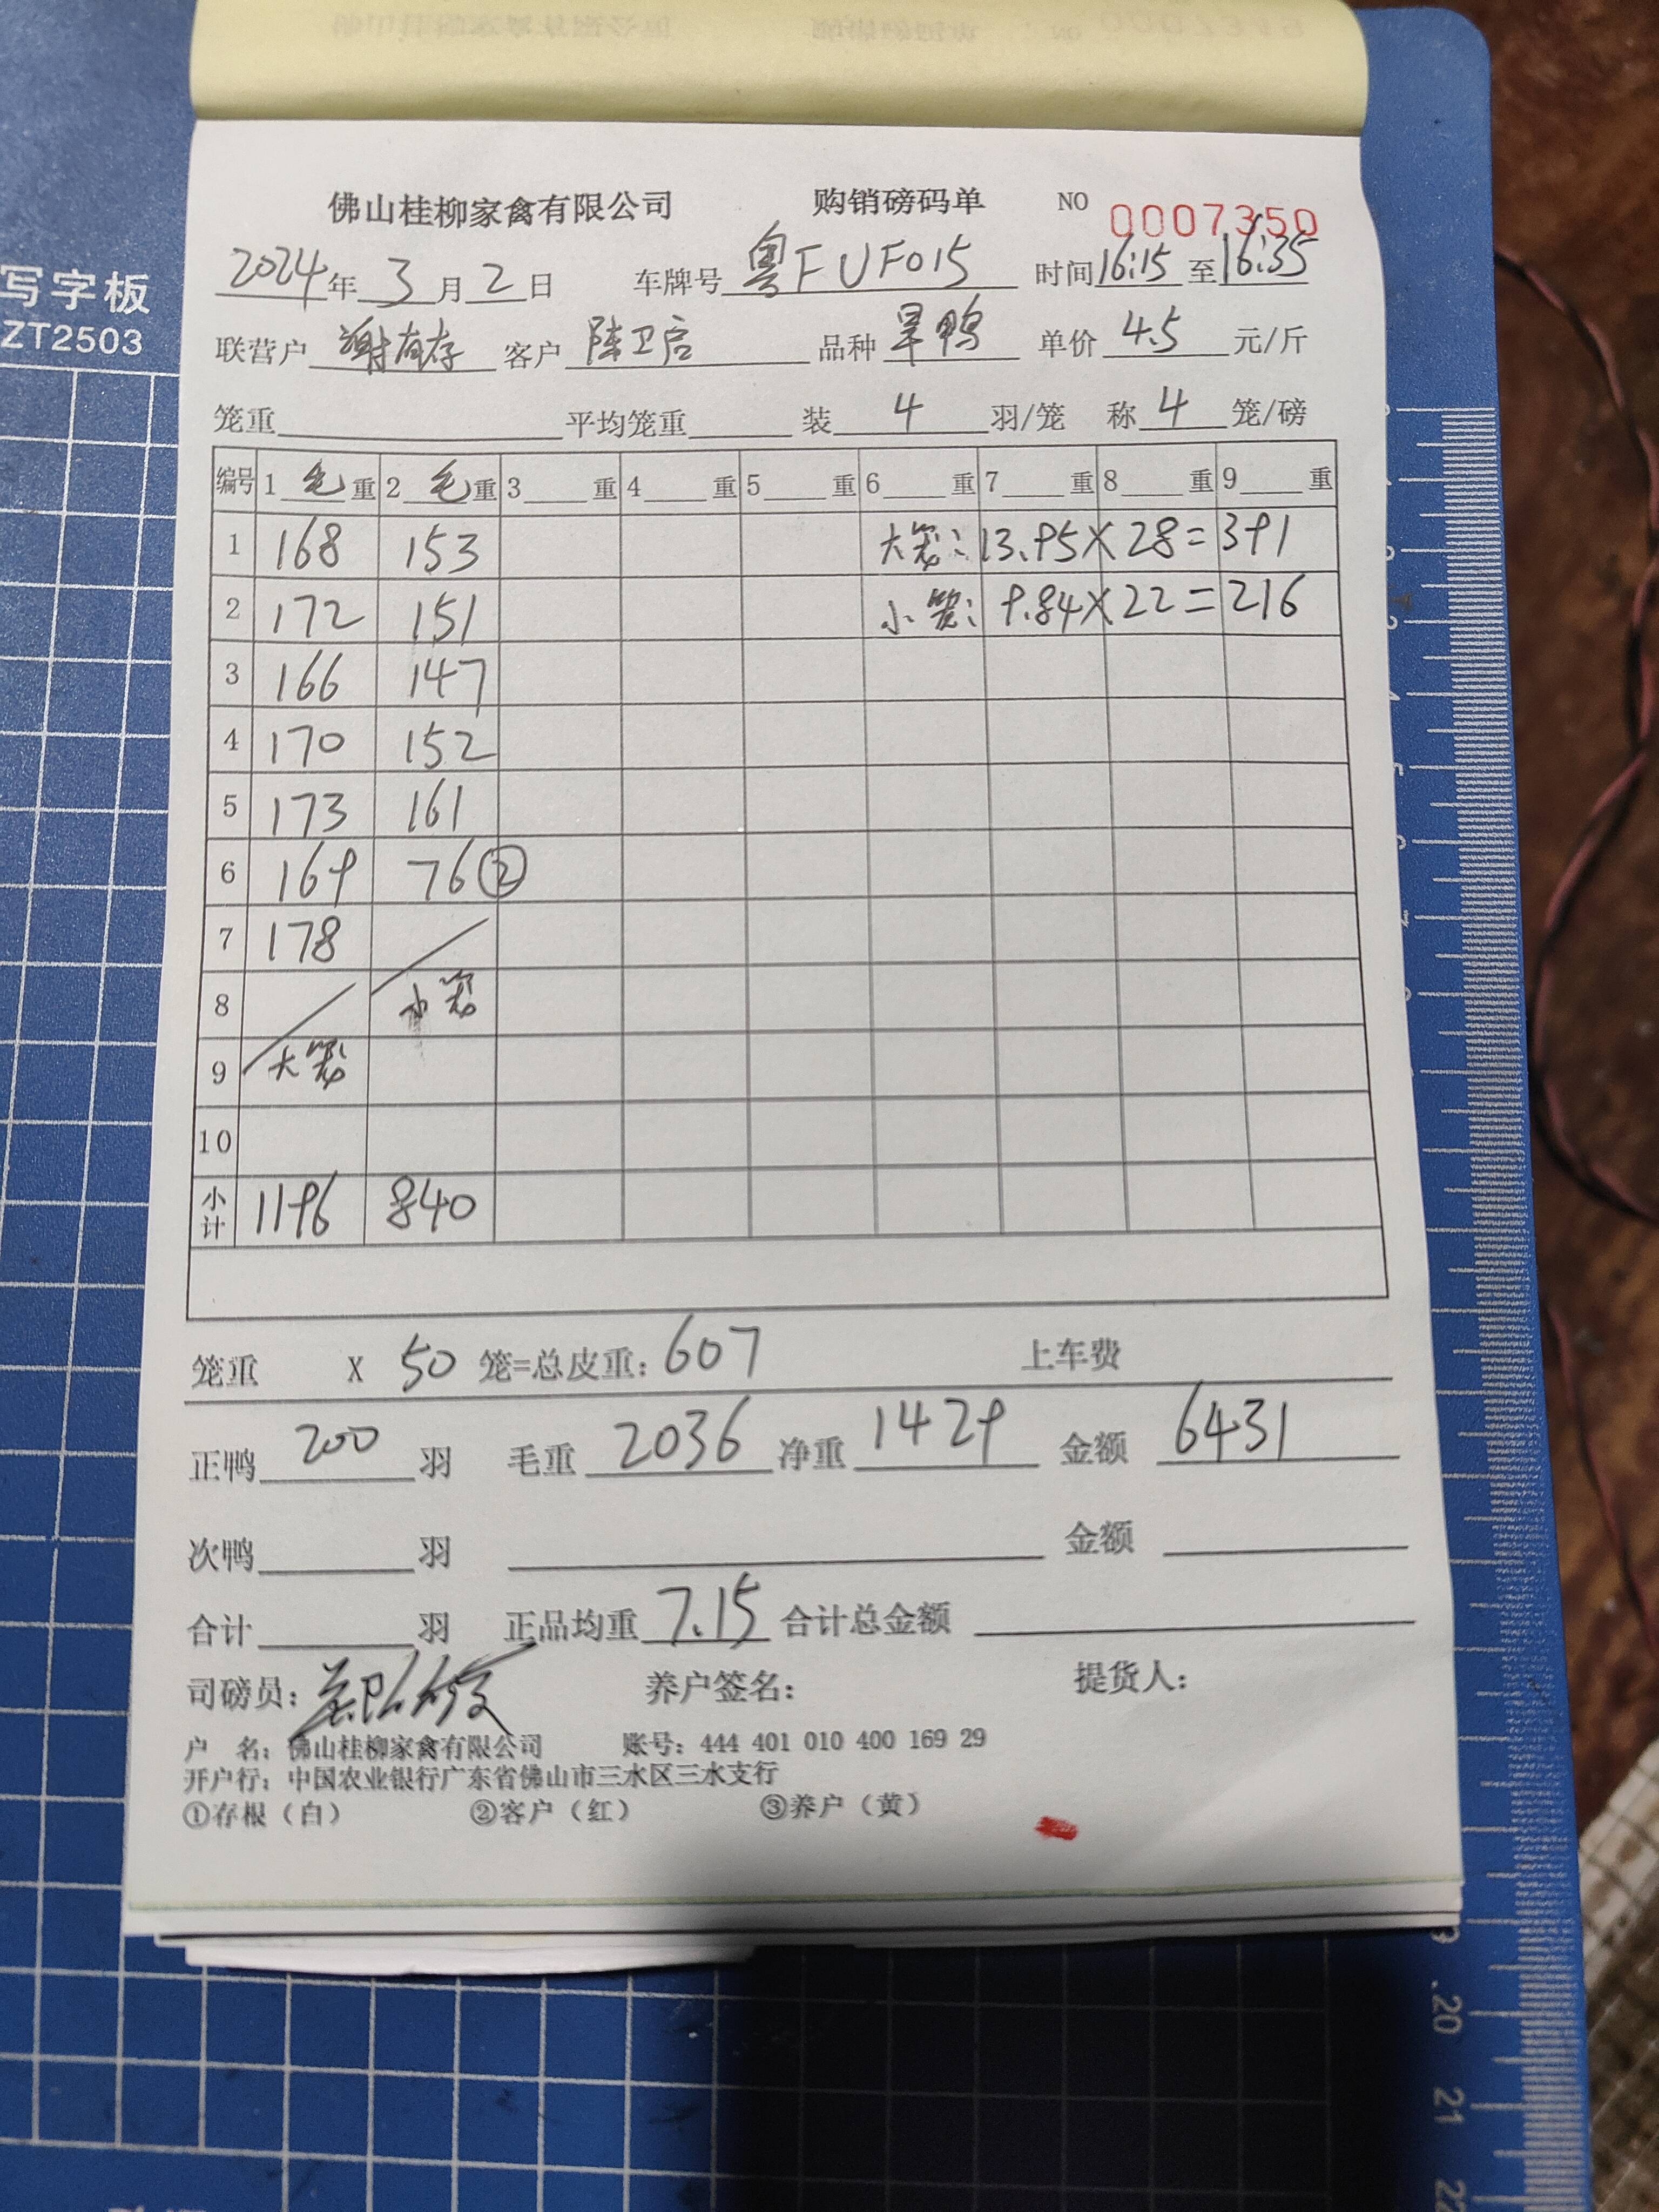 写字板
ZT2503
佛山桂柳家禽有限公司 购销磅码单 NO 0007350
2024年3月2日 车牌号 粤FUF015 时间16:15至16:35
联营户 谢有存 客户 陈卫启 品种 旱鸭 单价 4.5 元/斤
笼重 平均笼重 装 4 羽/笼 称 4 笼/磅
编号 1 毛 重 2 毛 重 3 重 4 重 5 重 6 重 7 重 8 重 9 重
1 168 153 大笼: 13.95×28=391
2 172 151 小笼: 9.84×22=216
3 166 147
4 170 152
5 173 161
6 169 76②
7 178
8 小笼
9 大笼
10
小计 1196 840
笼重 X 50 笼=总皮重: 607 上车费
正鸭 200 羽 毛重 2036 净重 1429 金额 6431
次鸭 羽 金额
合计 羽 正品均重 7.15 合计总金额
司磅员: 养户签名: 提货人:
户 名: 佛山桂柳家禽有限公司 账号: 444 401 010 400 169 29
开户行: 中国农业银行广东省佛山市三水区三水支行
①存根(白) ②客户(红) ③养户(黄)